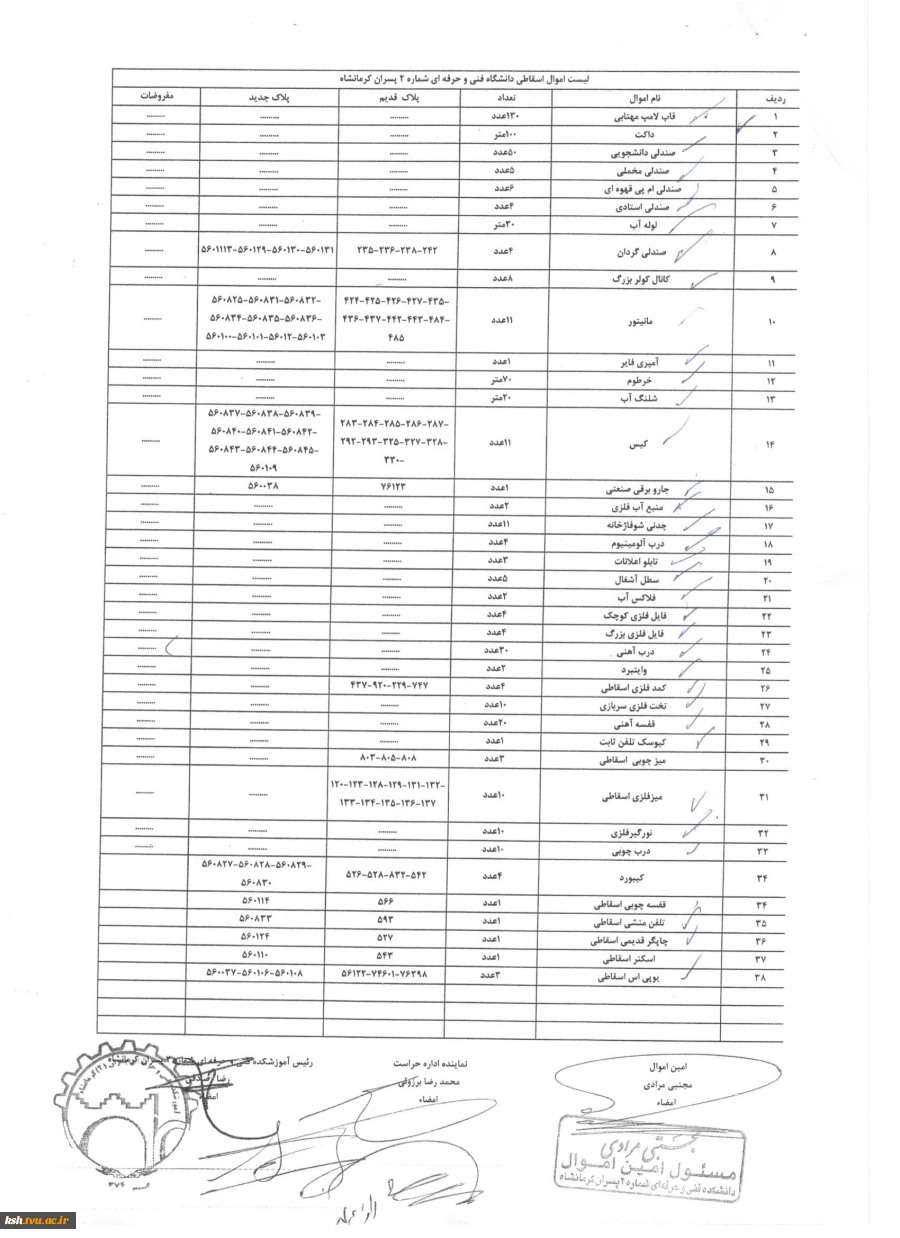 لیست اموال اسقاطی دانشگاه فنی و حرفه ای شماره ۲ پسران کرمانشاه
ردیف نام اموال تعداد پلاک قدیم پلاک جدید مفروضات
۱ قاب لامپ مهتابی ۱۳۰عدد ......... ......... .........
۲ داکت ۱۰۰متر ......... ......... .........
۳ صندلی دانشجویی ۵۰عدد ......... ......... .........
۴ صندلی مخملی ۵عدد ......... ......... .........
۵ صندلی ام پی قهوه ای ۶عدد ......... ......... .........
۶ صندلی استادی ۴عدد ......... ......... .........
۷ لوله آب ۳۰متر ......... ......... .........
۸ صندلی گردان ۴عدد ۲۳۵-۲۳۶-۲۳۸-۲۴۲ ۵۶۰۱۱۱۳-۵۶۰۱۲۹-۵۶۰۱۳۰-۵۶۰۱۳۱ .........
۹ کانال کولر بزرگ ۸عدد ......... ......... .........
۱۰ مانیتور ۱۱عدد ۴۲۴-۴۲۵-۴۲۶-۴۲۷-۴۳۵- ۵۶۰۸۲۵-۵۶۰۸۳۱-۵۶۰۸۳۲- .........
۴۳۶-۴۳۷-۴۴۲-۴۴۳-۴۸۴- ۵۶۰۸۳۴-۵۶۰۸۳۵-۵۶۰۸۳۶-
۴۸۵ ۵۶۰۱۰۰-۵۶۰۱۰۱-۵۶۰۱۲-۵۶۰۱۰۳
۱۱ آمپری فایر ۱عدد ......... ......... .........
۱۲ خرطوم ۷۰متر ......... ......... .........
۱۳ شلنگ آب ۲۰متر ......... ......... .........
۱۴ کیس ۱۱عدد ۲۸۳-۲۸۴-۲۸۵-۲۸۶-۲۸۷- ۵۶۰۸۳۷-۵۶۰۸۳۸-۵۶۰۸۳۹- .........
۲۹۲-۲۹۳-۳۲۵-۳۲۷-۳۲۸- ۵۶۰۸۴۰-۵۶۰۸۴۱-۵۶۰۸۴۲-
۳۳۰- ۵۶۰۸۴۳-۵۶۰۸۴۴-۵۶۰۸۴۵-
۵۶۰۱۰۹
۱۵ جارو برقی صنعتی ۱عدد ۷۶۱۲۳ ۵۶۰۰۳۸ .........
۱۶ منبع آب فلزی ۲عدد ......... ......... .........
۱۷ چدنی شوفاژخانه ۱۱عدد ......... ......... .........
۱۸ درب آلومینیوم ۴عدد ......... ......... .........
۱۹ تابلو اعلانات ۳عدد ......... ......... .........
۲۰ سطل آشغال ۵عدد ......... ......... .........
۲۱ فلاکس آب ۲عدد ......... ......... .........
۲۲ فایل فلزی کوچک ۴عدد ......... ......... .........
۲۳ فایل فلزی بزرگ ۴عدد ......... ......... .........
۲۴ درب آهنی ۳۰عدد ......... ......... .........
۲۵ وایتبرد ۲عدد ......... ......... .........
۲۶ کمد فلزی اسقاطی ۴عدد ۴۳۷-۹۲۰-۲۲۹-۷۴۷ ......... .........
۲۷ تخت فلزی سربازی ۱۰عدد ......... ......... .........
۲۸ قفسه آهنی ۲۰عدد ......... ......... .........
۲۹ کیوسک تلفن ثابت ۱عدد ......... ......... .........
۳۰ میز چوبی اسقاطی ۳عدد ۸۰۳-۸۰۵-۸۰۸ ......... .........
۳۱ میزفلزی اسقاطی ۱۰عدد ۱۲۰-۱۲۳-۱۲۸-۱۲۹-۱۳۱-۱۳۲- ......... .........
۱۳۳-۱۳۴-۱۳۵-۱۳۶-۱۳۷
۳۲ نورگیرفلزی ۱۰عدد ......... ......... .........
۳۳ درب چوبی ۱۰عدد ......... ......... .........
۳۴ کیبورد ۴عدد ۵۲۶-۵۲۸-۸۳۲-۵۴۲ ۵۶۰۸۲۷-۵۶۰۸۲۸-۵۶۰۸۲۹-
۵۶۰۸۳۰
۳۴ قفسه چوبی اسقاطی ۱عدد ۵۶۶ ۵۶۰۱۱۴
۳۵ تلفن منشی اسقاطی ۱عدد ۵۹۳ ۵۶۰۸۳۳
۳۶ چاپگر قدیمی اسقاطی ۱عدد ۵۲۷ ۵۶۰۱۲۴
۳۷ اسکنر اسقاطی ۱عدد ۵۴۳ ۵۶۰۱۱۰
۳۸ یوپی اس اسقاطی ۳عدد ۵۶۱۲۲-۷۴۶۰۱-۷۶۲۹۸ ۵۶۰۰۳۷-۵۶۰۱۰۶-۵۶۰۱۰۸
امین اموال نماینده اداره حراست رئیس آموزشکده فنی و حرفه ای شماره ۲ پسران کرمانشاه
مجتبی مرادی محمد رضا برزوئی رضا صادقی
امضاء امضاء امضاء
مجتبی مرادی
مسئول امین اموال
دانشکده فنی و حرفه ای شماره ۲ پسران کرمانشاه
ksh.tvu.ac.ir